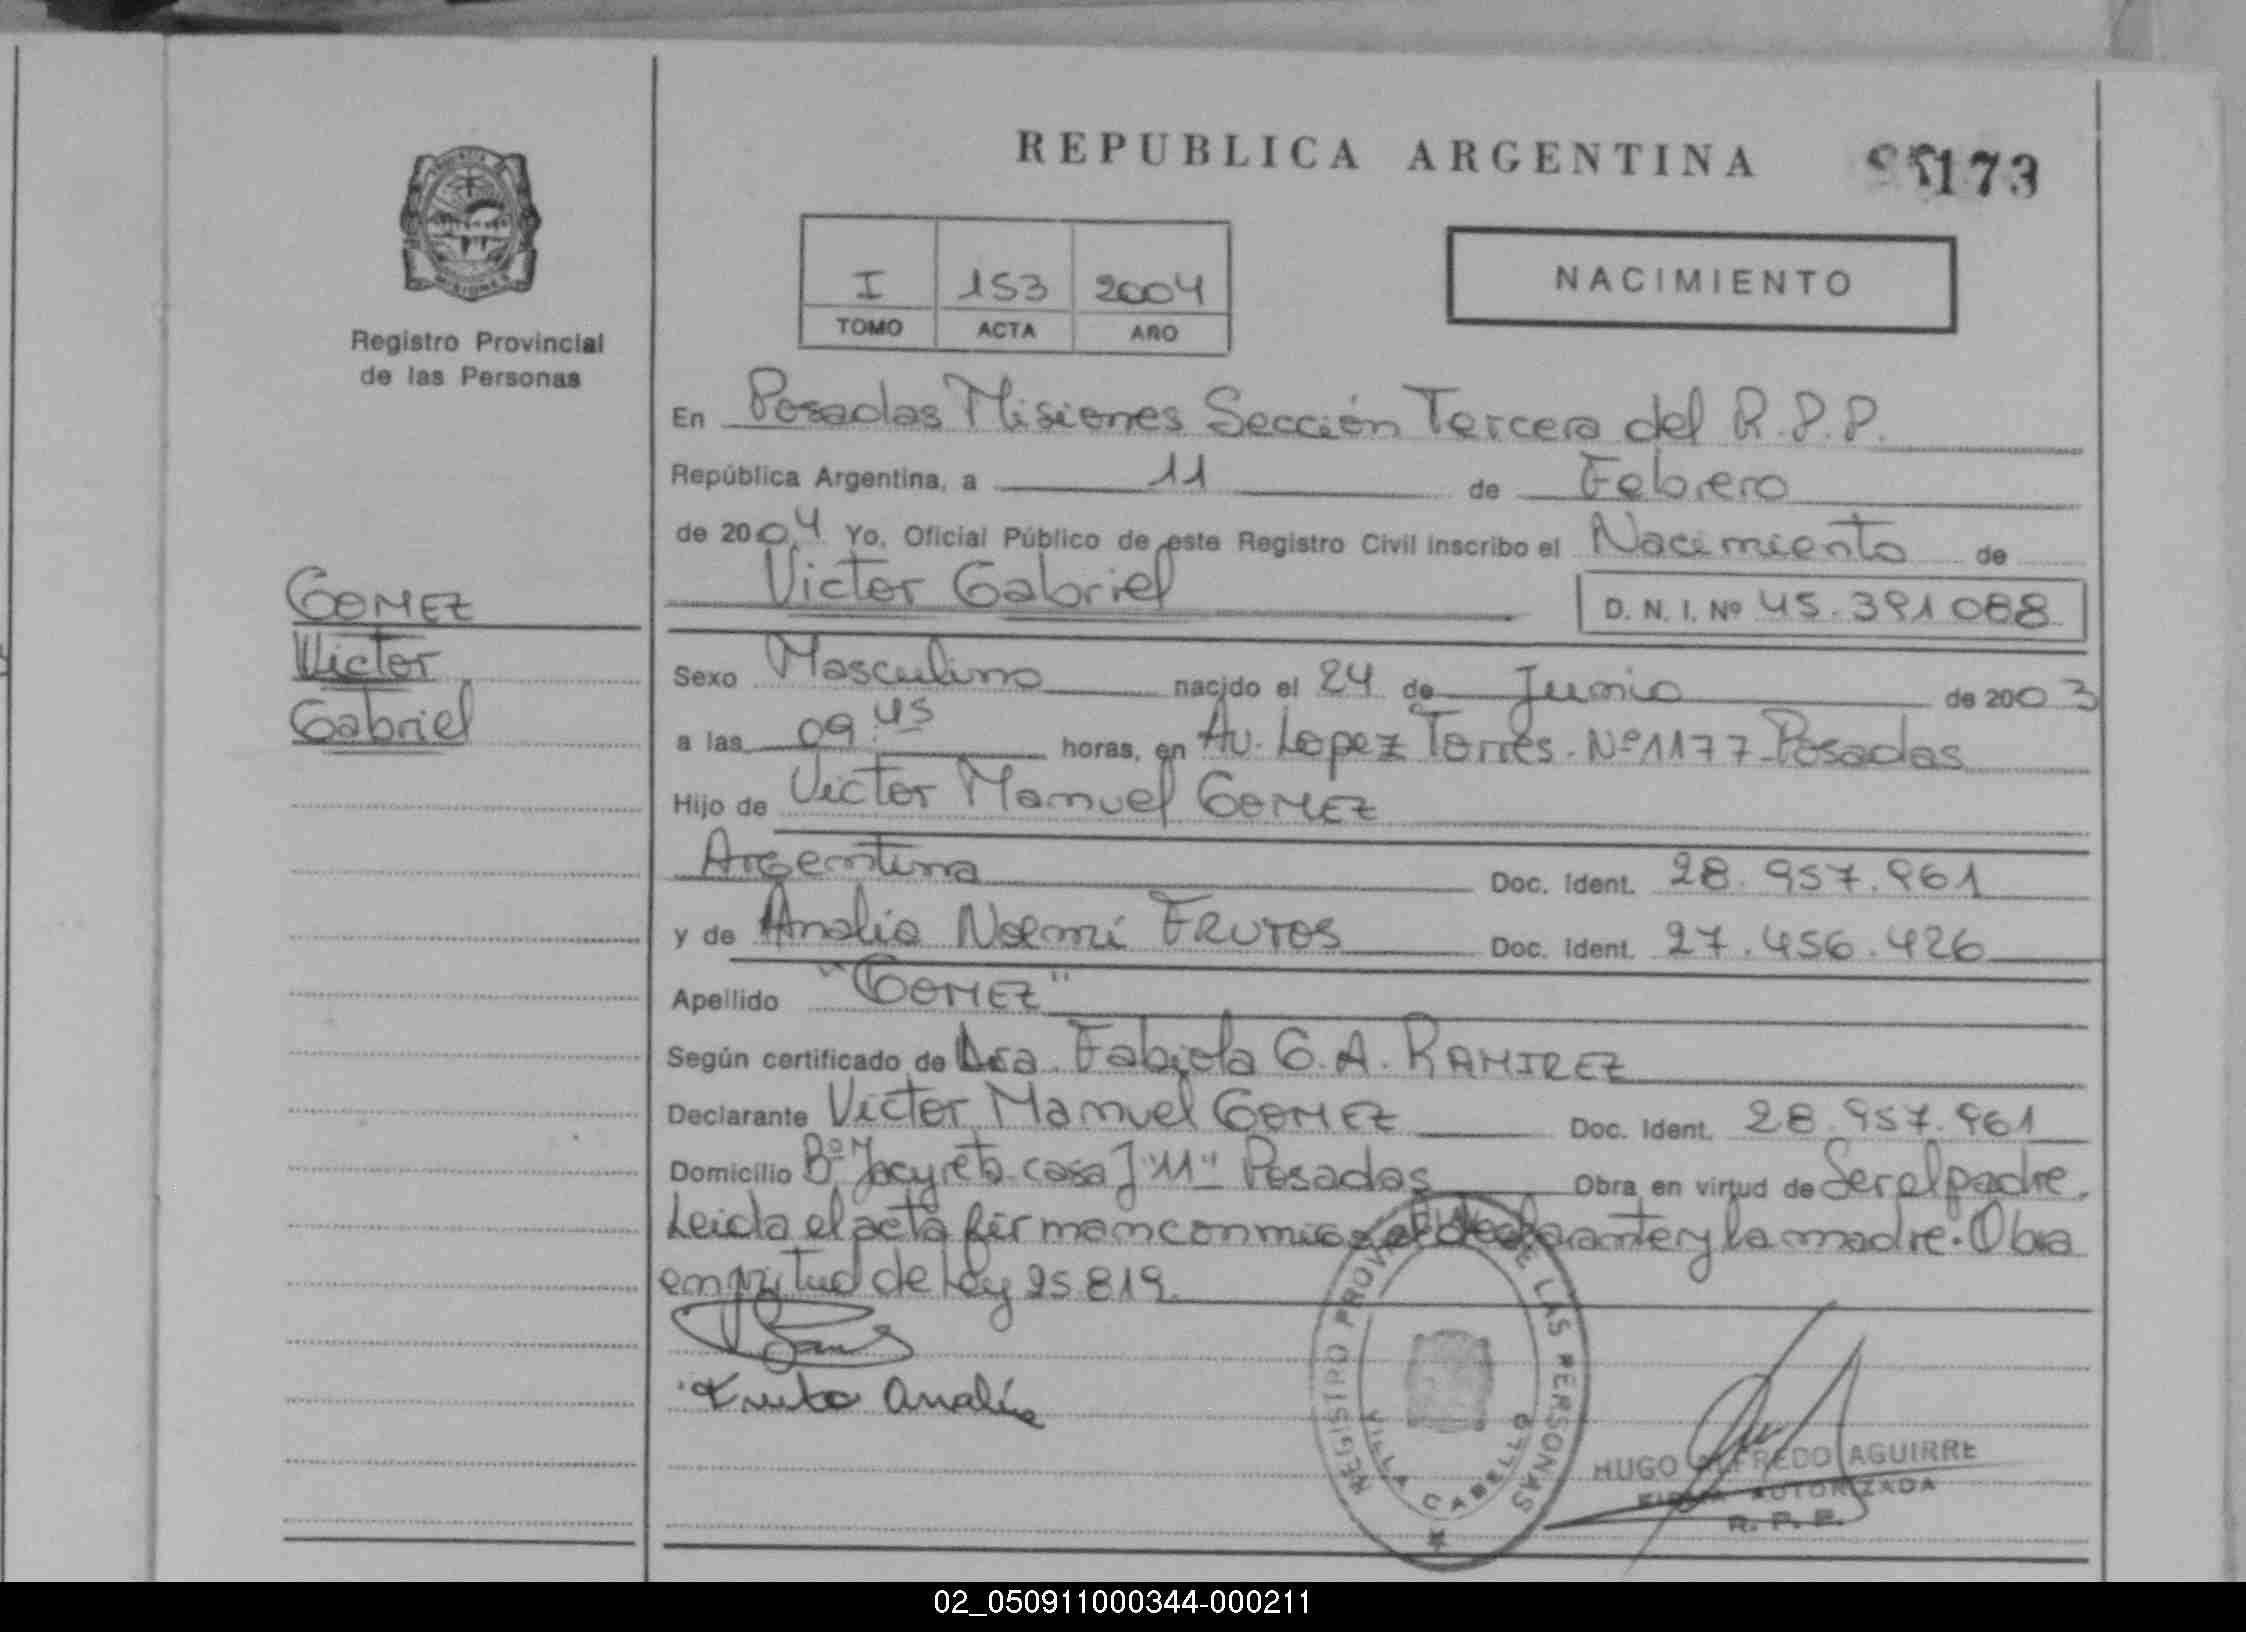 REPUBLICA ARGENTINA
173
I 153 2004
TOMO ACTA AÑO
NACIMIENTO
Registro Provincial
de las Personas
En Posadas Misiones Sección Tercera del R.P.P.
República Argentina, a 11 de Febrero
de 2004 Yo, Oficial Público de este Registro Civil inscribo el Nacimiento de
Victor Gabriel
D. N. I. Nº 45.391088
GOMEZ
Victor
Gabriel
Sexo Masculino nacido el 24 de Junio de 2003
a las 09:45 horas, en Av. Lopez Torres. Nº 1177 - Posadas
Hijo de Victor Manuel GOMEZ
Argentina Doc. Ident. 28.957.961
y de Analia Noemí FRUTOS Doc. Ident. 27.456.426
Apellido "GOMEZ"
Según certificado de Dra. Fabiola G.A. RAMIREZ
Declarante Victor Manuel GOMEZ Doc. Ident. 28.957.961
Domicilio Bº Yacyreta casa J "11" Posadas Obra en virtud de Ser el padre.
Leida el acta firman conmigo el declarante y la madre. Obra
en virtud de Ley 25.819.
Analia
REGISTRO PROV DE LAS PERSONAS
VILLA CABELLO
HUGO ALFREDO AGUIRRE
FIRMA AUTORIZADA
R. P. P.
MISIONES
02_050911000344-000211